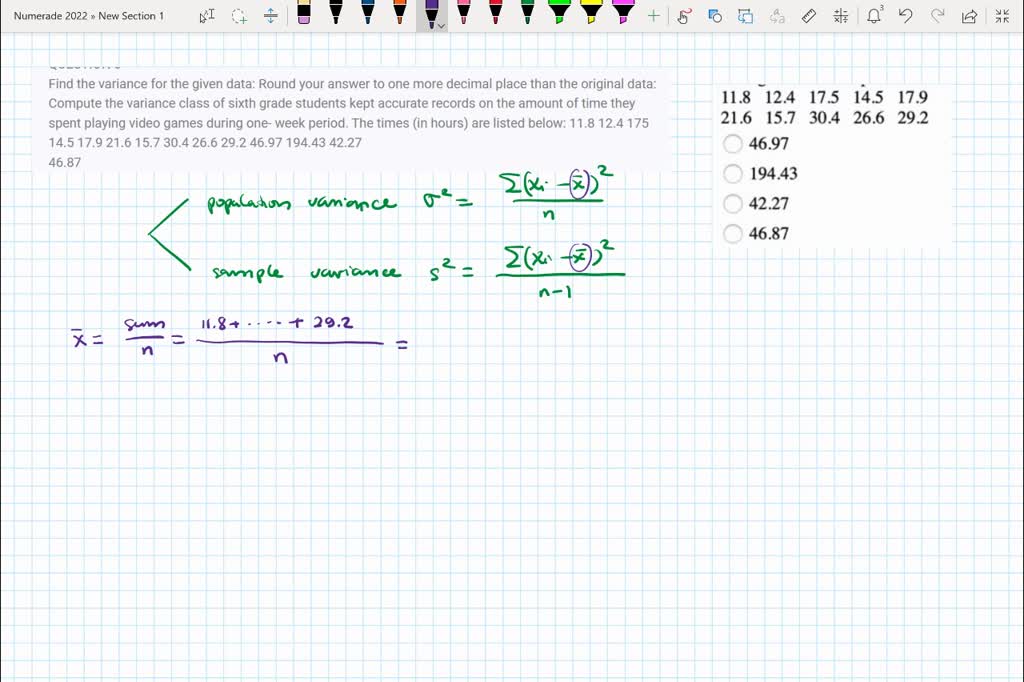 Numerade 2022 » New Section 1
Find the variance for the given data: Round your answer to one more decimal place than the original data:
Compute the variance class of sixth grade students kept accurate records on the amount of time they
spent playing video games during one- week period. The times (in hours) are listed below: 11.8 12.4 175
14.5 17.9 21.6 15.7 30.4 26.6 29.2 46.97 194.43 42.27
46.87
11.8 12.4 17.5 14.5 17.9
21.6 15.7 30.4 26.6 29.2
46.97
194.43
42.27
46.87
population variance σ² = Σ(xᵢ - x̄)² / n
sample variance s² = Σ(xᵢ - x̄)² / n-1
x̄ = sum / n = 11.8 + ..... + 29.2 / n =